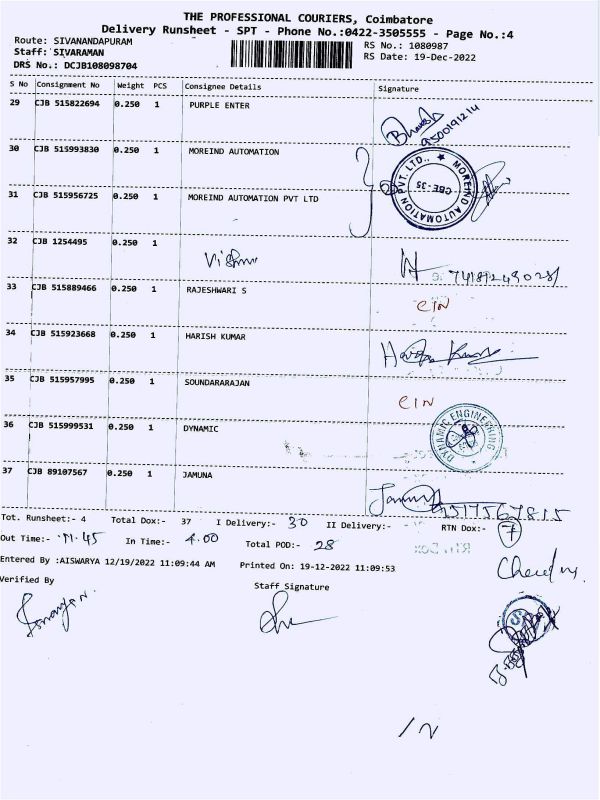 THE PROFESSIONAL COURIERS, Coimbatore
Delivery Runsheet - SPT - Phone No.:0422-3505555 - Page No.:4
Route: SIVANANDAPURAM
RS No.: 1080987
Staff: SIVARAMAN
RS Date: 19-Dec-2022
DRS No.: DCJB108098704
S No Consignment No Weight PCS Consignee Details Signature
29 CJB 515822694 0.250 1 PURPLE ENTER
9500191214
30 CJB 515993830 0.250 1 MOREIND AUTOMATION
MOREIND AUTOMATION PVT. LTD.,
CBE-35
31 CJB 515956725 0.250 1 MOREIND AUTOMATION PVT LTD
32 CJB 1254495 0.250 1 Vishnu
33 CJB 515889466 0.250 1 RAJESHWARI S CIN
34 CJB 515923668 0.250 1 HARISH KUMAR Harish Kumar
35 CJB 515957995 0.250 1 SOUNDARARAJAN CIN
36 CJB 515999531 0.250 1 DYNAMIC DYNAMIC ENGINEERING
37 CJB 89107567 0.250 1 JAMUNA
Tot. Runsheet:- 4 Total Dox:- 37 I Delivery:- 30 II Delivery:- RTN Dox:- 7
Out Time:- 11.45 In Time:- 4.00 Total POD:- 28
Entered By :AISWARYA 12/19/2022 11:09:44 AM Printed On: 19-12-2022 11:09:53
Verified By Staff Signature